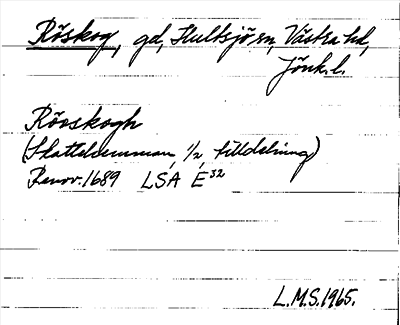 Röskog, gd, Hultsjö sn, Västra hd,
Jönk. l.
Röoskogh
(Skattehemman, 1/2, tilldelning)
Renov. 1689 LSA E³²
L.M.S. 1965.